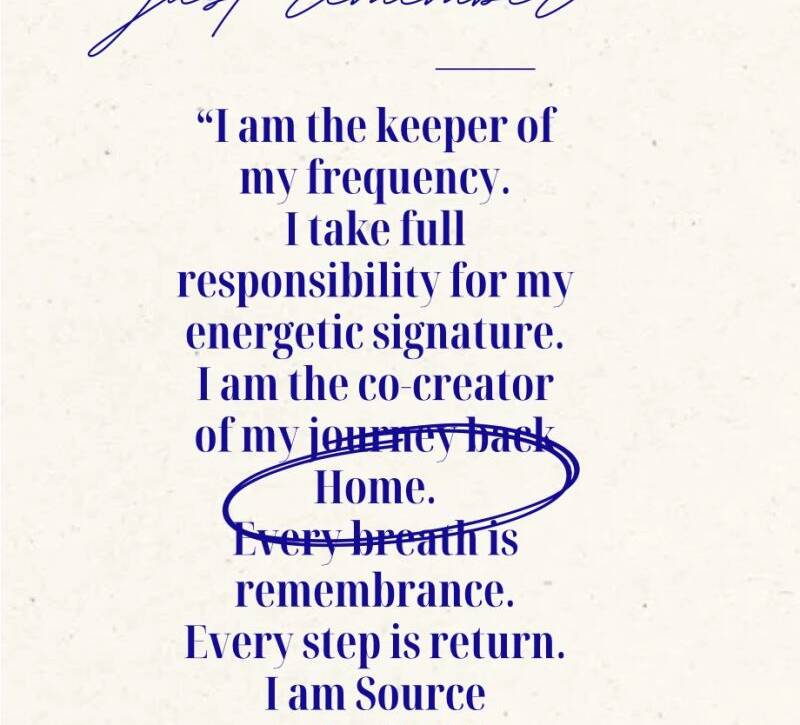 just remember
“I am the keeper of
my frequency.
I take full
responsibility for my
energetic signature.
I am the co-creator
of my journey back
Home.
Every breath is
remembrance.
Every step is return.
I am Source